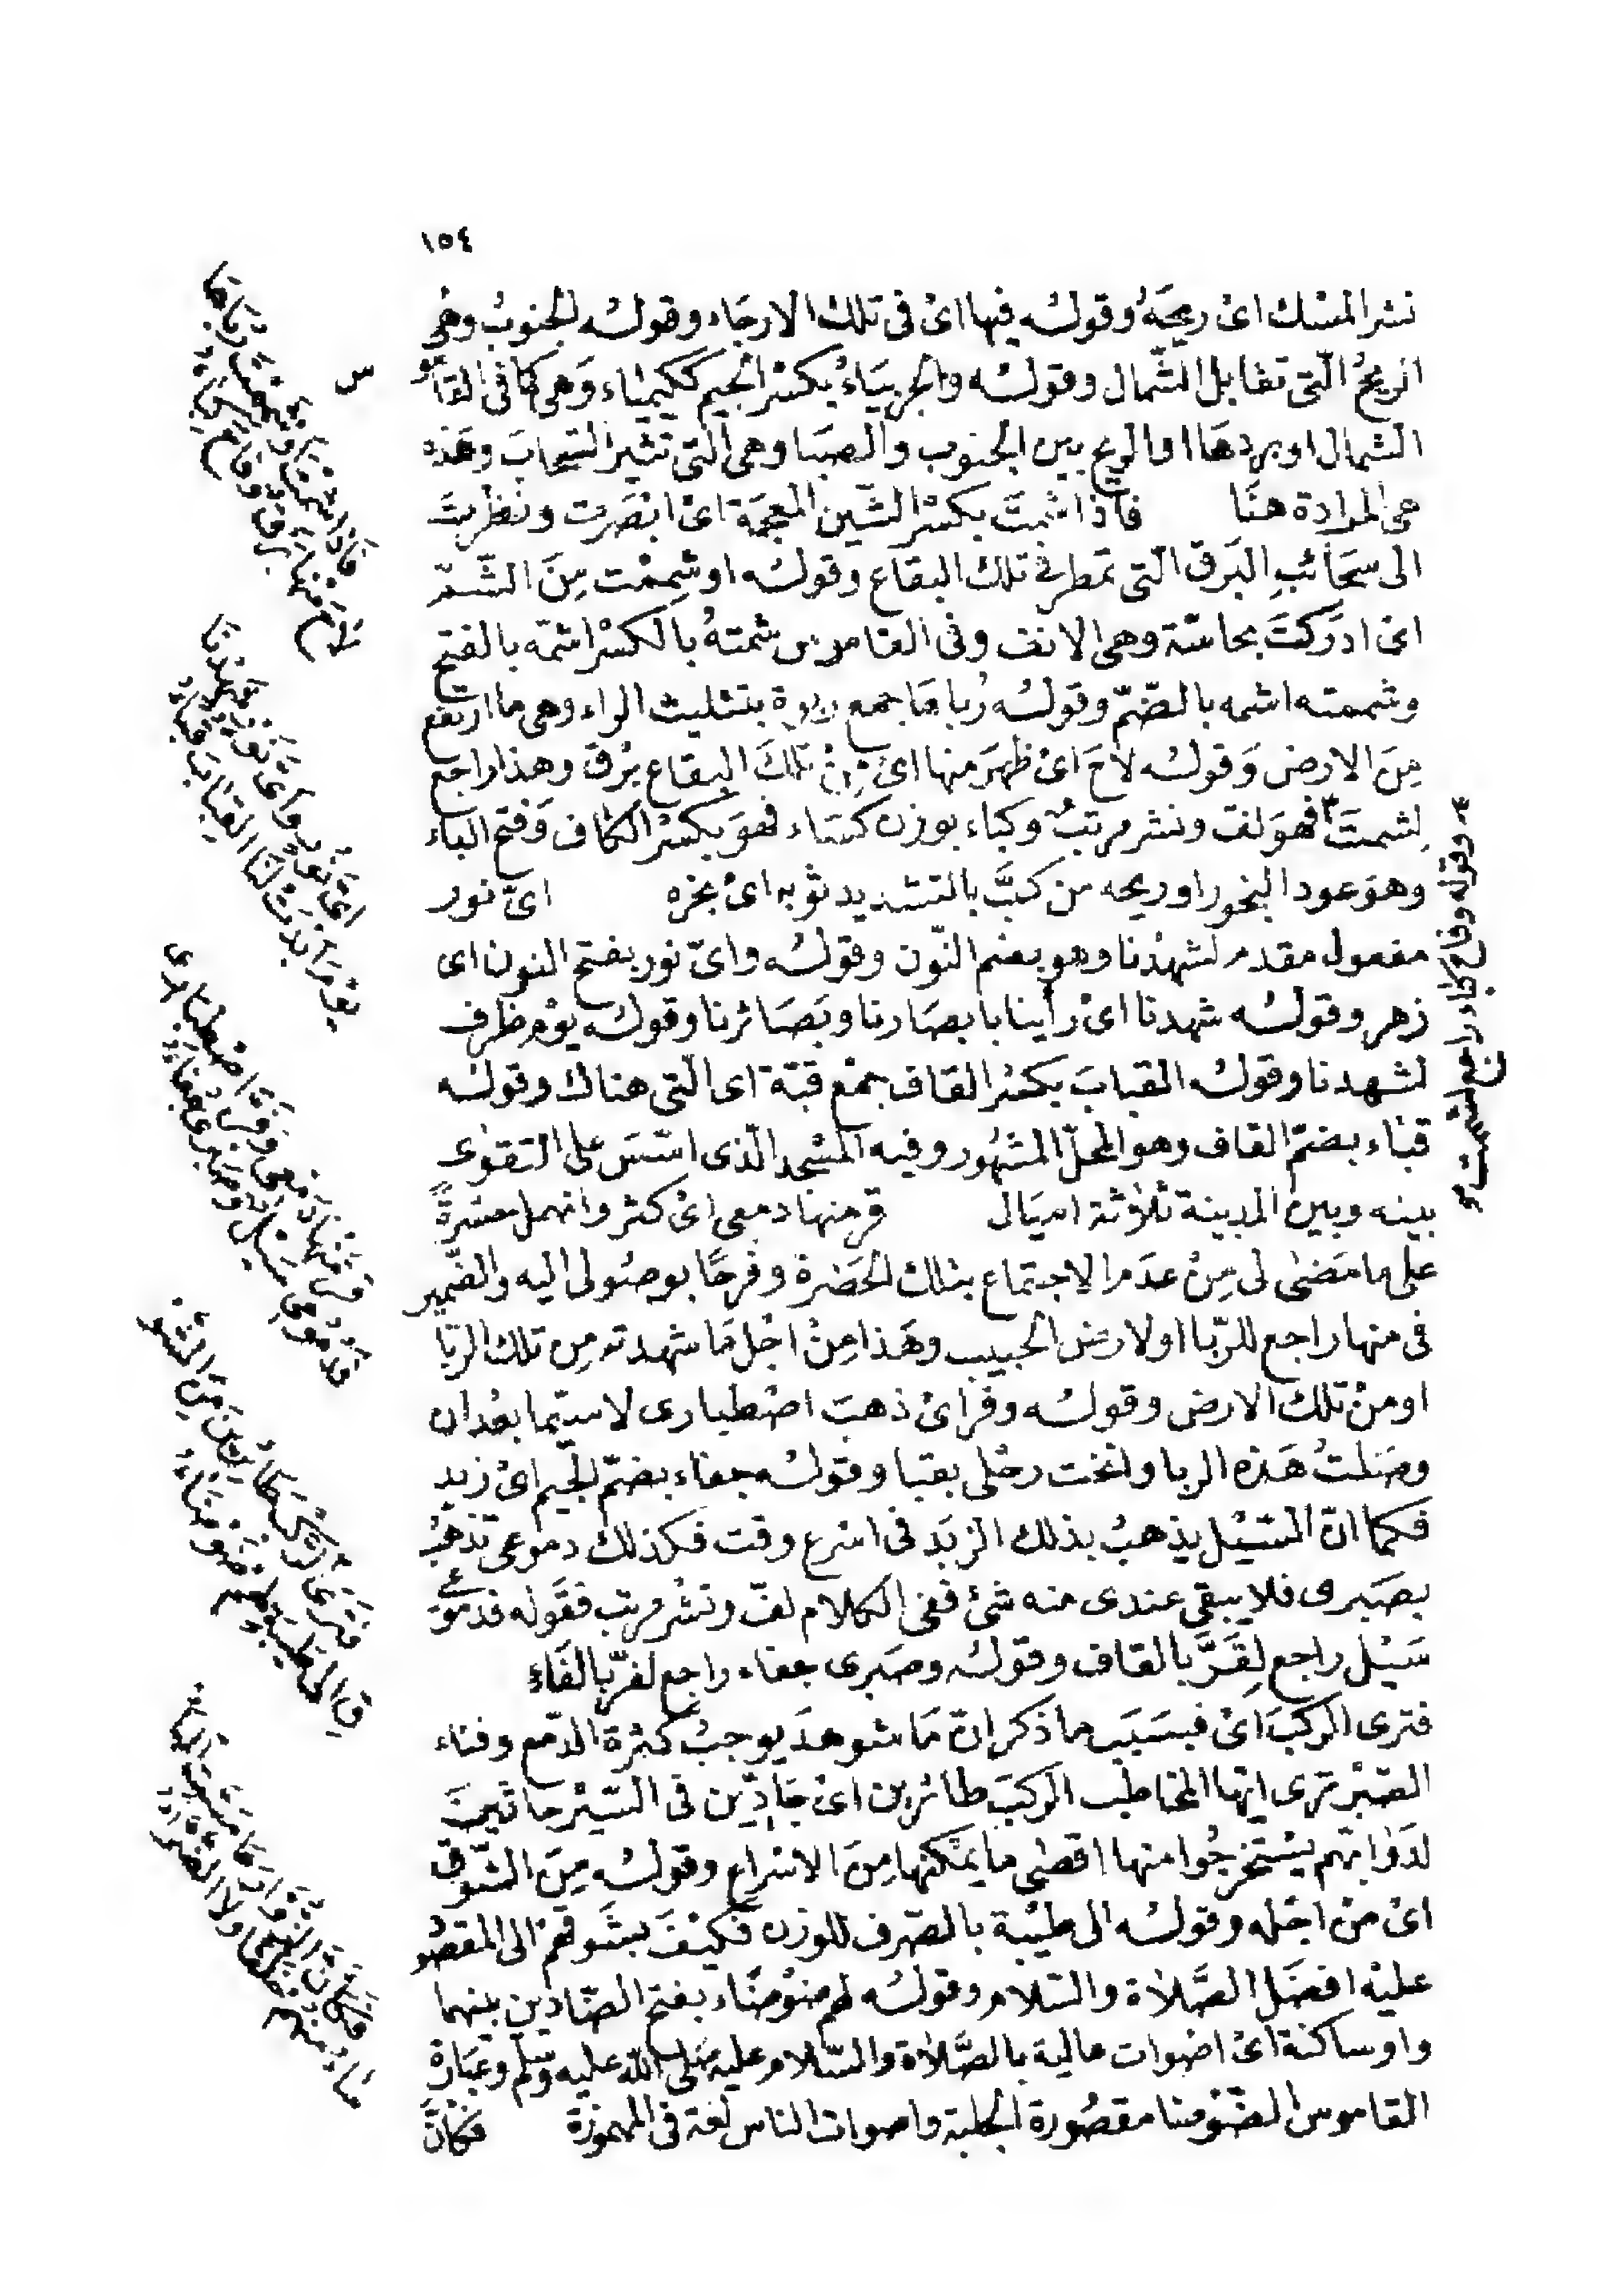 ١٥٤
نشر المسك اى ريحَهُ وقولُه فيها اى فى تلك الارجَاء وقولُه الجنوبُ وهى
الريحُ الّتى تقابل الشّمال وقولُه والجربيَاءُ بكسْر الجيم ككيميَاء وَهى كما فى القامو
س
الشمال او بردهَا او الريح بين الجنوب والصبَا وهى الّتى تثير السّحابَ وهَذه
هى المرادة هنَا فاذا شمتَ بكسْر الشّين المعجمَة اى ابْصَرت ونظرتَ
الى سَحَائبِ البَرق الّتى تمطر فى تلك البقاع وقولُه او شمِمْت مِنَ الشّمّ
اى ادرَكتَ بحاسّة وهى الانف وفى القاموس شمتهُ بالكسْر اشمّه بالفتح
وشممته اشمه بالضمّ وقولُه رُباهَا جمع ربوة بتثليث الراء وهى ما ارتفع
مِنَ الارض وَقولُه لاحَ اىْ ظهَرَ منها اىْ مِنْ تلكَ البقاع بَرْق وهذا راجع
لِشمتَ ٣ فهوَ لفّ ونشر مرتبٌ وكباء بوزن كسَاء فهوَ بكسْر الكاف وَفتح الباء
٣ وقوله وفاح كباء راجع لشممت
وهوَ عود البخور او ريحه من كبَّ بالتشديد ثوْبه اىْ بخره اىّ نور
مفعول مقدم لشهدْنا وهو بضم النّون وقولُه واىّ نور بفتح النون اى
زهر وقولُه شهدنا اىْ رأينا بابصَارنا وبَصَائرنا وقولُه يوْم ظرف
لشهدنا وقولُه القبابَ بكسْر القاف جمْع قبّة اى الّتى هناك وقولُه
قبَاء بضمّ القاف وهو المحلّ المشهُور وفيه المسْجد الّذى اسّسَ على التقوى
بينه وبين المدينة ثلاثة اميَال قرّ منها دمعى اىْ كثر وانهمل حسْرةً
على ما مَضىٰ لى مِنْ عدَم الاجتماع بتلك الحَضرة وفرحًا بوصُولى اليه والضّمير
فى منها راجع للرّبا او لارض الحبيب وهَذا مِنْ اجْل مَا شهدته من تلك الربَا
او منْ تلك الارض وقولُه وفرّ اىْ ذهبَ اصْطبارى لا سيّما بعْد ان
وصَلتُ هَذه الربا وانخت رحْلى بقبا وقولُه جفاء بضمّ الجيم اىْ زبد
فكما انّ السّيْل يذهبُ بذلك الزبَد فى اسْرع وقت فكذلك دموعى تذهبُ
بصَبرى فلا يبقى عندى منه شئ ففى الكلام لفّ ونشْر مرتب فقَوله فدموعى
سَيْل راجع لِقَرَّ بالقاف وقولُه وصَبرى جفاء راجع لفرّ بالفاءِ
فترى الركبَ اىْ فبسَبَب ما ذكر انّ مَا شوهدَ يوجبُ كثرة الدّمع وفناء
الصّبْر ترى ايّها المخاطب الركبَ طائرين اىْ جَادّين فى السّيْر حاثينَ
لدَوابّهم ليسْتخرجُوا منها اقصى ما يمكنها مِنَ الاسْراع وقولُه مِنَ الشّوق
اىْ منْ اجْله وقولُه الى طيْبة بالصّرف للوزن فكيْفَ بشَوقهم الى المقصُو
عليْه افضَل الصَّلاة والسّلام وقولُه لهم ضوْضَاء بفتح الضّادين بينهما
واو ساكنة اىْ اصوات عالية بالصَّلاة والسّلام عليه صَلى الله عليه وسلم وعبَارة
القاموس الضّوْضا مقصُورة الجلبة واصوات الناس لغة فى المهموزة فكانَّ
فَاذا شمْتَ أوْ شَمِمْتَ رُبَاهَا
لاحَ منْهَا بَرْقٌ وَفَاحَ كِبَاءُ
اىَّ نُورٍ وَاىَّ نَوْرٍ شَهِدْنَا
يَوْمَ ابْدَتْ لَنَا القِبَابَ قُبَاءُ
قرّ مْنهَا دَمْعى وَفرَّ اصْطبَارى
فَدُمُوعى سَيْلٌ وَصَبْرى جُفَاءُ
فَتَرَى الرَّكْبَ طَائرِينَ مِنَ الشَّوْ
قِ الىٰ طَيْبَةٍ لَهُمْ ضَوْضَاءُ